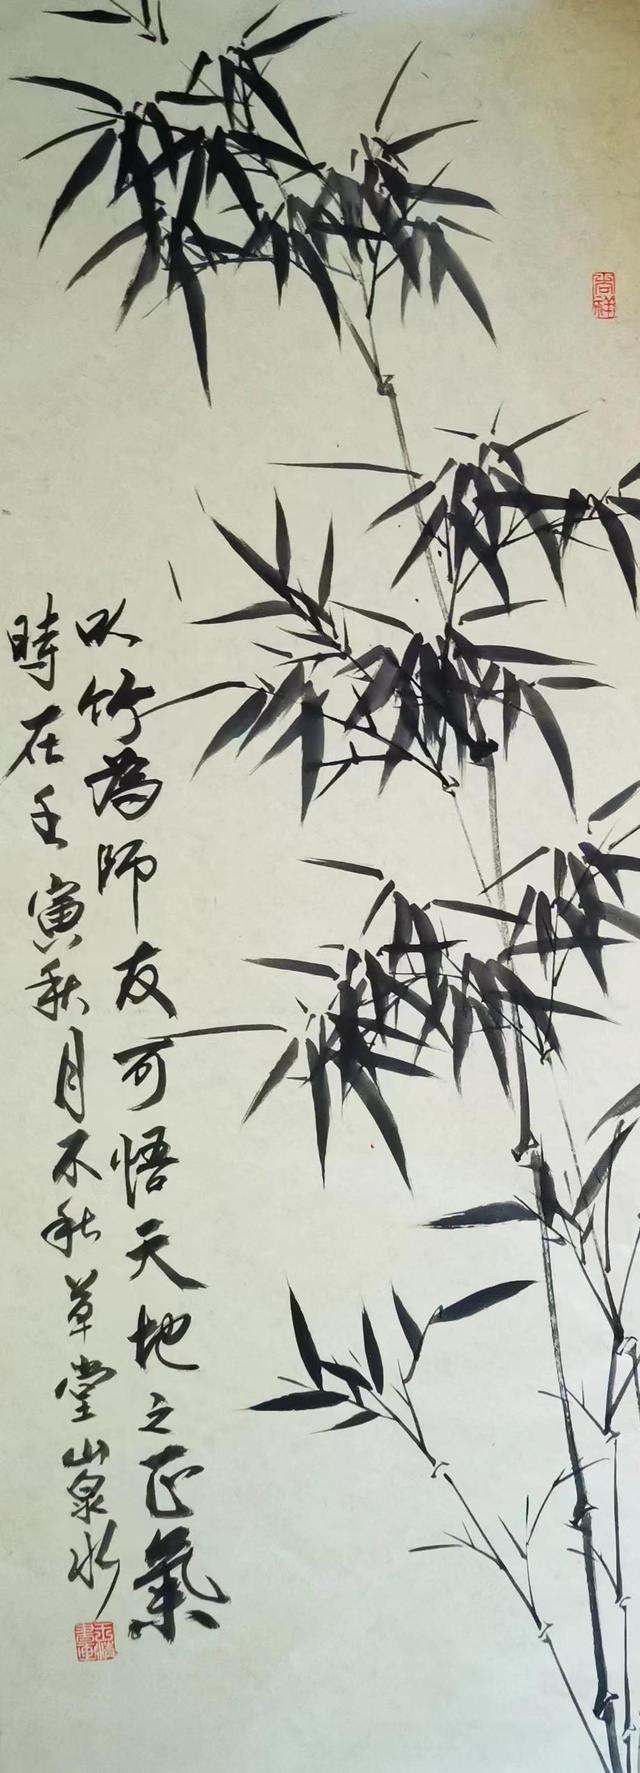 以竹為師友可悟天地之正氣
時在壬寅秋月不秋草堂山泉水